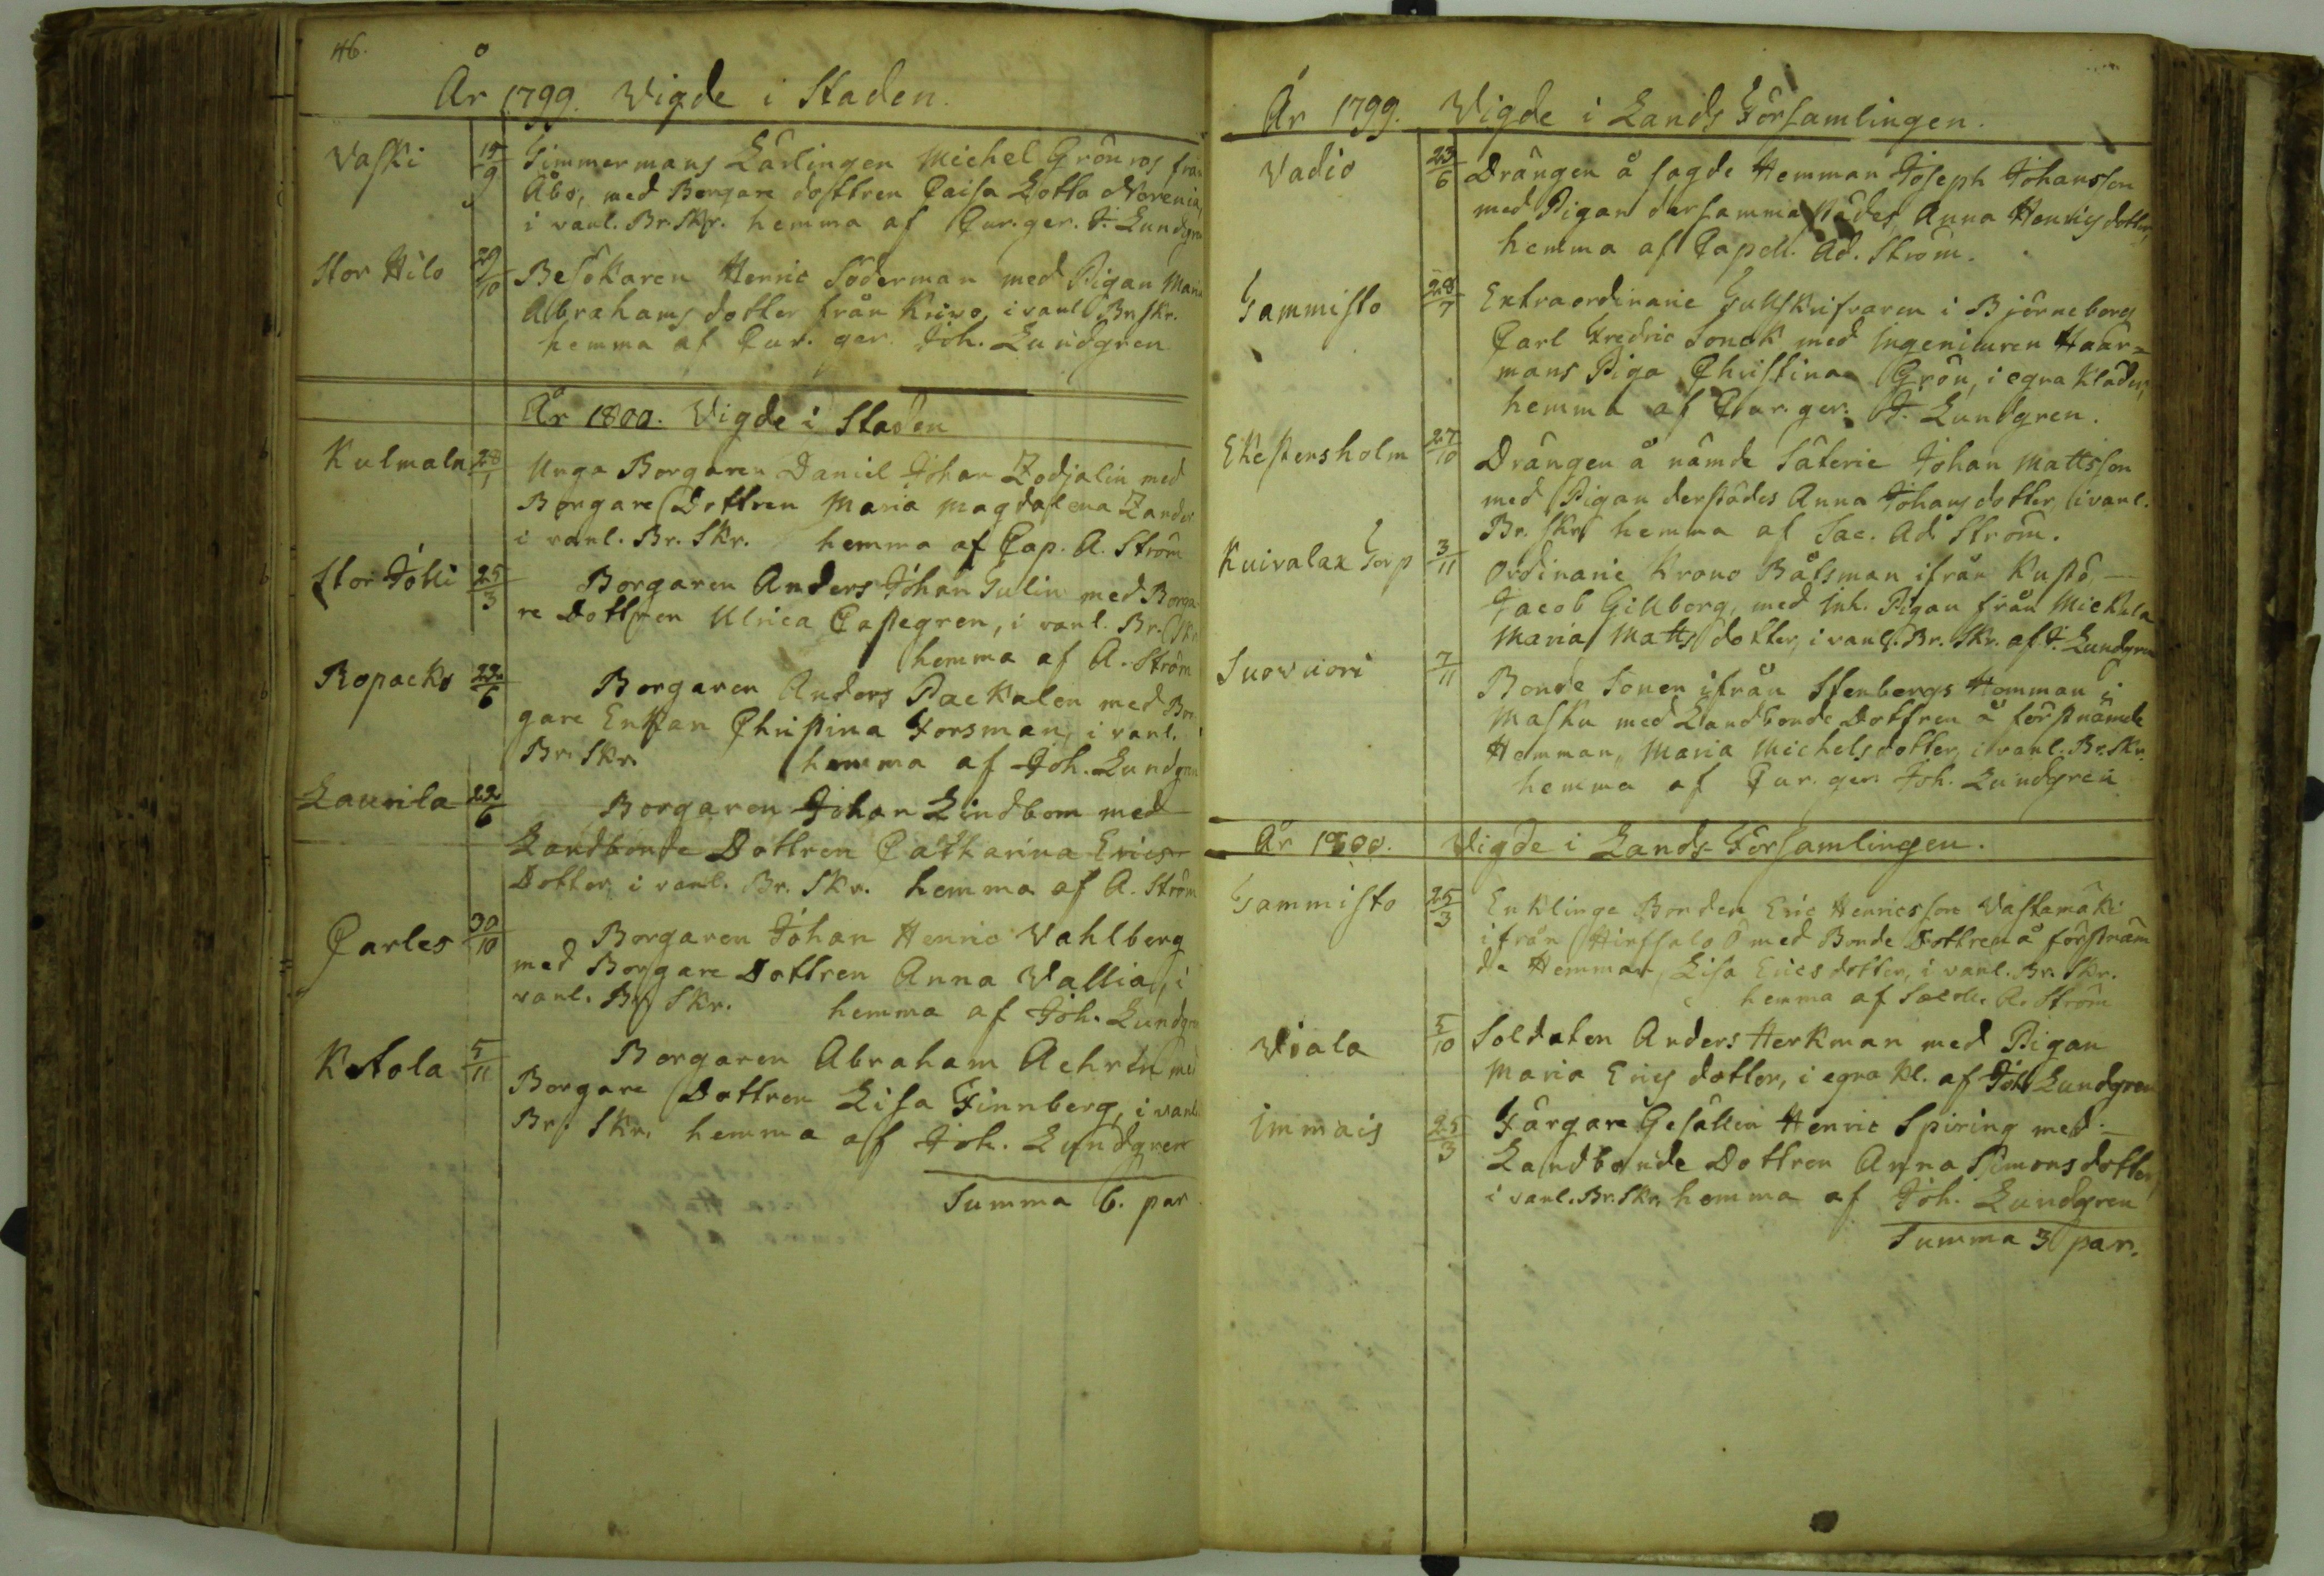 46.
År 1799. Vigde i Staden.
Vaski 15/9 Timmermans Lärlingen Michel Grönros från
Åbo, med Borgare dottren Caisa Lotta Norenia,
i vanl. Br. Skr. hemma af Cur. ger. J. Lundgren
Stor Hilo 29/10 Besökaren Henric Söderman med Pigan Maria
Abrahams dotter från Krivo, i vanl Br. Skr.
hemma af Cur. ger. Joh. Lundgren
År 1800. Vigde i Staden
Kulmala 28/1 Unga Borgaren Daniel Johan Zodjalin med
Borgare Dottren Maria Magdalena Zander
i vanl. Br. Skr. hemma af Cap. A. Ström
Stor Jölli 25/3 Borgaren Anders Johan Tulin med Borga-
re Dottren Ulrica Capegren, i vanl. Br. Skr
hemma af A. Ström
Ropacko 22/6 Borgaren Anders Packalen med Bor
gare Enkan Christina Forsman, i vanl.
Br. Skr. hemma af Joh. Lundgren
Laurila 22/6 Borgaren Johan Lindbom med
Landbonde Dottren Catharina Erics
Dotter, i vanl. Br. Skr. hemma af A. Ström
Carles 30/10 Borgaren Johan Henric Vahlberg
med Borgare Dottren Anna Vallia, i
vanl. Br. Skr. hemma af Joh. Lundgren
Ketola 5/11 Borgaren Abraham Aehrén med
Borgare Dottren Lisa Finnberg, i vanl
Br. Skr. hemma af Joh. Lundgren
Summa 6. par
År 1799. Vigde i Lands Församlingen.
Vadio 23/6 Drängen å sagde Hemman Joseph Johansson
med Pigan dersammastädes, Anna Henricsdotter,
hemma af Capell. Ad. Ström.
Tammisto 28/7 Extraordinarie Tullskrifvaren i Björneborg
Carl Fredric Sonck med Ingenieuren Haar=
mans Piga Christina Grön, i egna Kläder,
hemma af Cur. ger. J. Lundgren.
Ekestensholm 27/10 Drängen å nämde Säterie Johan Mattsson
med Pigan derstädes Anna Johans dotter, i vanl.
Br. Skr. hemma af Sac. Ad. Ström.
Kuivalax Torp 3/11 Ordinarie Krono Båtsman ifrån Kustö,
Jacob Gillberg, med Inh. Pigan från Mickula
Maria Matts dotter, i vanl. Br. Skr. af J. Lundgren
Suovuori 7/11 Bonde Sonen ifrån Stenbergs Hemman i
Masku med Landbonde Dottren å förstnämde
Hemman, Maria Michelsdotter, i vanl. Br. Skr.
hemma af Cur. ger. Joh. Lundgren
År 1800. Vigde i Lands-Församlingen.
Tammisto 25/3 Enklinge Bonden Eric Henricsson Vastamäki
ifrån Hirfsalo Ö med Bonde Dottren å förstnäm
de Hemman, Lisa Ericsdotter, i vanl. Br. Skr.
hemma af A. Ström
Viala 5/10 Soldaten Anders Herkman med Pigan
Maria Erics dotter, i egna Kl. af Joh Lundgren
Immais 25/3 Färgare Gesällen Henric Spiring med
Landbonde Dottren Anna Simonsdotter,
i vanl. Br. Skr. hemma af Joh. Lundgren
Summa 3 par.